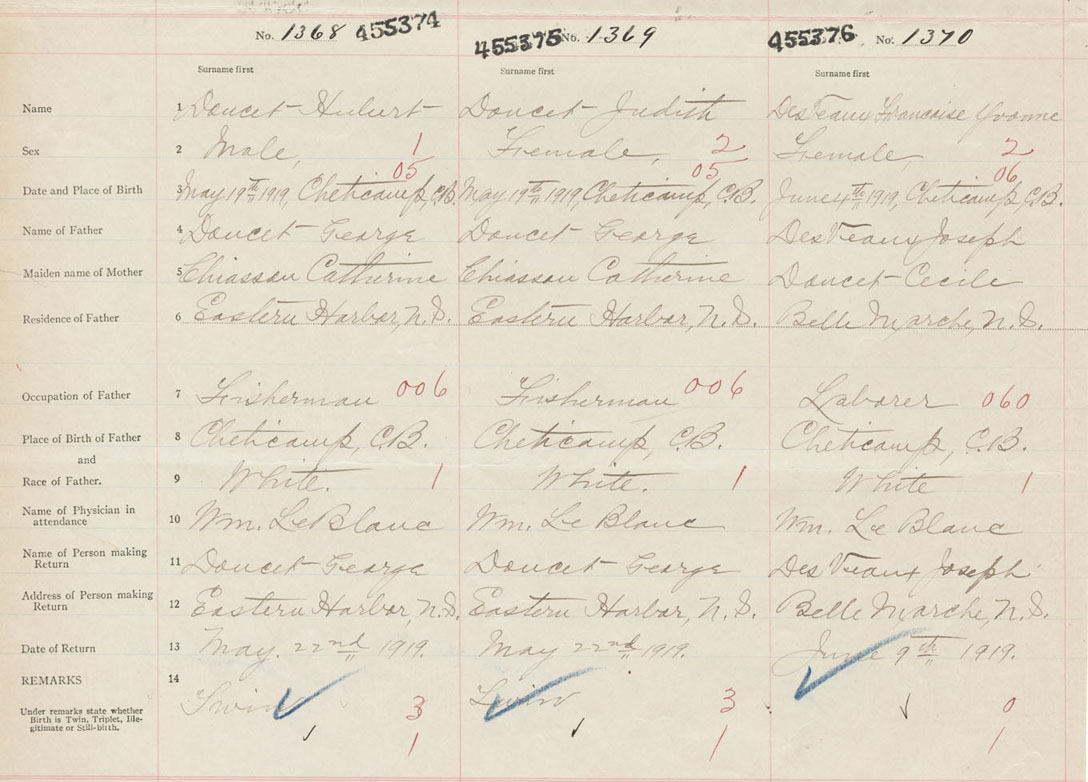 No. 1368 455374 455375 No. 1369 455376 No. 1370
Surname first Surname first Surname first
Name 1 Doucet Hubert Doucet Judith DesVeaux Francoise Yvonne
Sex 2 Male, 1 Female, 2 Female, 2
05 05 06
Date and Place of Birth 3 May 19th 1919, Cheticamp, C.B. May 19th 1919, Cheticamp, C.B. June 4th 1919, Cheticamp, C.B.
Name of Father 4 Doucet George Doucet George DesVeaux Joseph
Maiden name of Mother 5 Chiasson Catherine Chiasson Catherine Doucet Cecile
Residence of Father 6 Eastern Harbor, N.S. Eastern Harbor, N.S. Belle Marche, N.S.
Occupation of Father 7 Fisherman 006 Fisherman 006 Laborer 060
Place of Birth of Father 8 Cheticamp, C.B. Cheticamp, C.B. Cheticamp, C.B.
and
Race of Father. 9 White. 1 White. 1 White 1
Name of Physician in
attendance 10 Wm. LeBlanc Wm. Le Blanc Wm. Le Blanc
Name of Person making
Return 11 Doucet George Doucet George Des Veaux Joseph
Address of Person making
Return 12 Eastern Harbor, N.S. Eastern Harbor, N.S. Belle Marche, N.S.
Date of Return 13 May. 22nd 1919. May 22nd 1919. June 9th 1919.
REMARKS 14 Twin Twin
Under remarks state whether
Birth is Twin, Triplet, Ille-
gitimate or Still-birth.
3 3 0
1 1 1